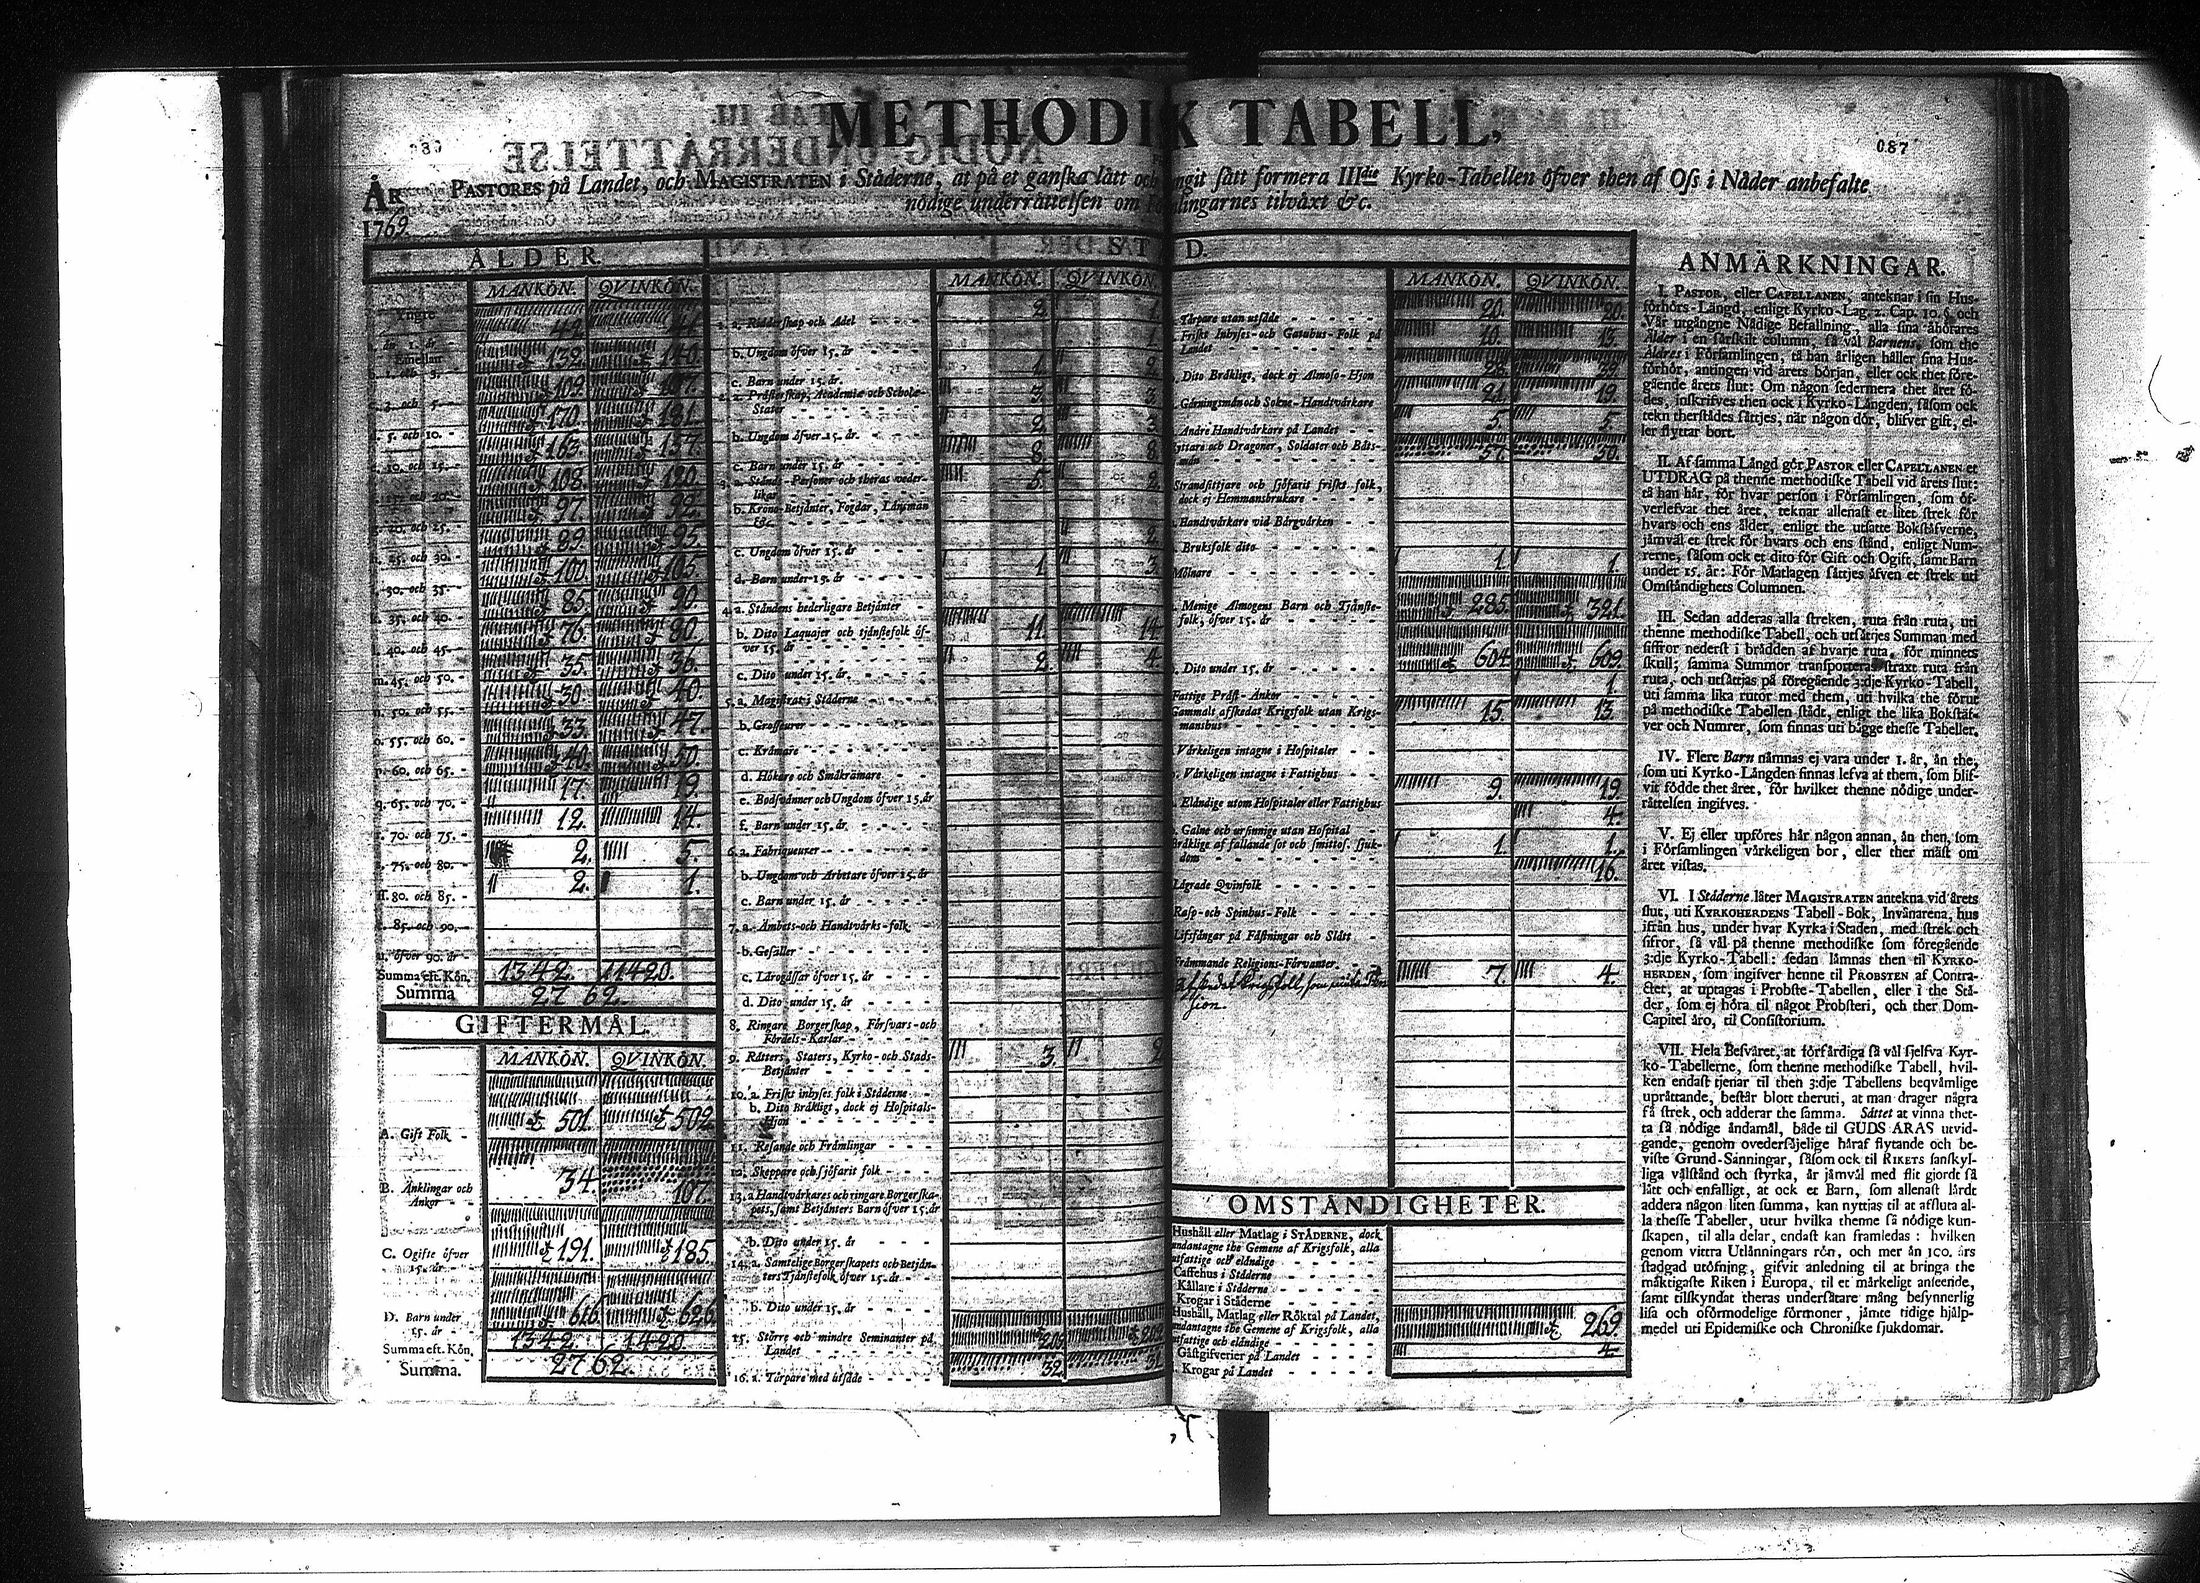 METHODIK TABELL,
087
ÅR PASTORES på Landet, och MAGISTRATEN i Städerne, at på et ganska lätt och ringit sätt formera IIIdie Kyrko-Tabellen öfver then af Oss i Nåder anbefalte
1769. nödige underrättelsen om Församlingarnes tilväxt &c.
ÅLDER
MANKÖN. QVINKÖN.
Yngre
än 1. år - 42. 41.
Emellan
1. och 3. 132. 140.
3. och 5. 109. 107.
5. och 10. - 170. 181.
10. och 15. 163. 157.
15. och 20. 108. 120.
20. och 25. 97. 92.
25. och 30. - 89. 95.
30. och 35. - 100. 105.
35. och 40. - 85. 90.
40. och 45. 76. 80.
m. 45. och 50. - 35. 36.
n. 50. och 55. - 30. 40.
o. 55. och 60. - 33. 47.
p. 60. och 65. - 40. 50.
q. 65. och 70. - 17. 19.
r. 70. och 75. - 12. 14.
s. 75. och 80. - 2. 5.
ss. 80. och 85. - 2. 1.
t. 85. och 90. -
u. öfver 90. år -
Summa eft. Kön. 1342. 1420.
Summa 2762.
GIFTERMÅL.
MANKÖN. QVINKÖN.
A. Gift Folk - 501. 502.
B. Änklingar och
Änkor - - 34. 107.
C. Ogifte öfver
15. år - - 191. 185.
D. Barn under
15. år - - 616. 626.
Summa eft. Kön. 1342. 1420.
Summa. 2762.
STÅND.
MANKÖN. QVINKÖN.
1. a. Ridderskap och Adel 2. 1.
b. Ungdom öfver 15. år 1.
c. Barn under 15. år. 1. 2.
2. a. Prästerskap, Academiæ och Schole-
Stater 3. 3.
b. Ungdom öfver 15. år. 2. 3.
c. Barn under 15. år 8. 8.
3. a. Stånds-Personer och theras veder-
likar 5. 2.
b. Krono-Betjänter, Fogdar, Länsmän
&c.
c. Ungdom öfver 15. år 2.
d. Barn under 15. år 1. 3.
4. a. Ståndens hederligare Betjänter
b. Dito Laquajer och tjänstefolk öf-
ver 15. år 11. 14.
c. Dito under 15. år 2. 4.
5. a. Magistrat i Städerne
b. Grosseurer
c. Krämare
d. Hökare och Småkrämare
e. Bodsvänner och Ungdom öfver 15. år
f. Barn under 15. år
6. a. Fabriqueurer
b. Ungdom och Arbetare öfver 15. år
c. Barn under 15. år
7. a. Ämbets- och Handtvärks-folk
b. Gesäller
c. Lärogåssar öfver 15. år
d. Dito under 15. år
8. Ringare Borgerskap, Försvars- och
Fördels-Karlar
9. Rätters, Staters, Kyrko- och Stads-
Betjänter 3. 2
10. a. Friskt inhyses folk i Städerne
b. Dito Bräkligt, dock ej Hospitals-
Hjon
11. Resande och Främlingar
12. Skeppare och sjöfarit folk
13. a Handtvärkares och ringare Borgerska-
pets, samt Betjänters Barn öfver 15. år
b. Dito under 15. år
14. a. Samtelige Borgerskapets och Betjän-
ters Tjänstefolk öfver 15. år
b. Dito under 15. år
15. Större och mindre Hemmanter på
Landet
16. a. Tårpare med utsäde 32. 31.
MANKÖN. QVINKÖN.
Tårpare utan utsäde 20. 20.
Friskt Inhyses- och Gatuhus-Folk på
Landet 10. 13.
Dito Bräklige, dock ej Almoso-Hjon 28. 39.
Gärningsmän och Sokne-Handtvärkare 21. 19.
Andre Handtvärkare på Landet 5. 5.
Ryttare och Dragoner, Soldater och Båts-
män 57. 50.
Strandsittjare och sjöfarit friskt folk,
dock ej Hemmansbrukare
Handtvärkare vid Bärgvärken
Bruksfolk dito
Mölnare 1. 1.
Menige Almogens Barn och Tjänste-
folk, öfver 15. år 285. 321.
Dito under 15. år 604. 609.
Fattige Präst-Änkor 1.
Gammalt afskedat Krigsfolk utan Krigs-
manshus 15. 13.
Värkeligen intagne i Hospitaler
Värkeligen intagne i Fattighus
Eländige utom Hospitaler eller Fattighus 9. 19
Galne och ursinnige utan Hospital 4.
Bräklige af fallande sot och smittos. sjuk-
dom 1. 1.
Lägrade Qvinfolk 16.
Rasp- och Spinhus-Folk
Lifsfångar på Fästningar och Slått
Främmande Religions-Förvanter.
afskedat krigsfolk, som niuta Pen 7. 4.
sion.
OMSTÄNDIGHETER.
Hushåll eller Matlag i STÄDERNE, dock
undantagne the Gemene af Krigsfolk, alla
utfattige och eländige
Caffehus i Städerne
Källare i Städerne
Krogar i Städerne
Hushåll, Matlag eller Röktal på Landet,
undantagne the Gemene af Krigsfolk, alla
utfattige och eländige 269.
Gästgifverier på Landet 4.
Krogar på Landet
ANMÄRKNINGAR.
I. PASTOR, eller CAPELLANEN, anteknar i sin Hus-
förhörs-Längd, enligt Kyrko-Lag. 2. Cap. 10. §. och
Vår utgångne Nådige Befallning, alla sina åhörares
Ålder i en särskilt column, så väl Barnens, som the
Äldres i Församlingen, tå han årligen håller sina Hus-
förhör, antingen vid årets början, eller ock thet före-
gående årets slut: Om någon sedermera thet året fö-
des, inskrifves then ock i Kyrko-Längden, såsom ock
tekn therstädes sättjes, när någon dör, blifver gift, el-
ler flyttar bort.
II. Af samma Längd gör PASTOR eller CAPELLANEN et
UTDRAG på thenne methodiske Tabell vid årets slut:
tå han här, för hvar person i Församlingen, som öf-
verlefvat thet året, teknar allenast et litet strek för
hvars och ens ålder, enligt the utsatte Bokstäfverne,
jämväl et strek för hvars och ens stånd, enligt Num-
rerne, såsom ock et dito för Gift och Ogift, samt Barn
under 15. år: För Matlagen sättjes äfven et strek uti
Omständighets Columnen.
III. Sedan adderas alla streken, ruta från ruta, uti
thenne methodiske Tabell, och utsättjes Summan med
siffror nederst i brädden af hvarje ruta, för minnets
skull; samma Summor transporteras straxt ruta från
ruta, och utsättjas på föregående 3:dje Kyrko-Tabell,
uti samma lika rutor med them, uti hvilka the förut
på methodiske Tabellen stådt, enligt the lika Bokstäf-
ver och Numrer, som finnas uti bägge thesse Tabeller.
IV. Flere Barn nämnas ej vara under 1. år, än the,
som uti Kyrko-Längden finnas lefva at them, som blif-
vit födde thet året, för hvilket thenne nödige under-
rättelsen ingifves.
V. Ej eller upföres här någon annan, än then, som
i Församlingen värkeligen bor, eller ther mäst om
året vistas.
VI. I Städerne låter MAGISTRATEN antekna vid årets
slut, uti KYRKOHERDENS Tabell-Bok, Invånarena, hus
ifrån hus, under hvar Kyrka i Staden, med strek och
sifror, så väl på thenne methodiske som föregående
3:dje Kyrko-Tabell: sedan lämnas then til KYRKO-
HERDEN, som ingifver henne til PROBSTEN af Contra-
ctet, at uptagas i Probste-Tabellen, eller i the Stä-
der, som ej höra til något Probsteri, och ther Dom-
Capitel äro, til Consistorium.
VII. Hela Besväret, at förfärdiga så väl sjelfva Kyr-
ko-Tabellerne, som thenne methodiske Tabell, hvil-
ken endast tjenar til then 3:dje Tabellens beqvämlige
uprättande, består blott theruti, at man drager några
få strek, och adderar the samma. Sättet at vinna thet-
ta så nödige ändamål, både til GUDS ÄRAS utvid-
gande, genom ovedersäjelige häraf flytande och be-
viste Grund-Sanningar, såsom ock til RIKETS sanskyl-
liga välstånd och styrka, är jämväl med flit gjordt så
lätt och enfalligt, at ock et Barn, som allenast lärdt
addera någon liten summa, kan nyttjas til at afsluta al-
la thesse Tabeller, utur hvilka thenne så nödige kun-
skapen, til alla delar, endast kan framledas: hvilken
genom vittra Utlänningars rön, och mer än 100. års
stadgad utöfning, gifvit anledning til at bringa the
mäktigaste Riken i Europa, til et märkeligt anseende,
samt tilskyndat theras undersåtare mång besynnerlig
lisa och oförmodelige förmoner, jämte tidige hjälp-
medel uti Epidemiske och Chroniske sjukdomar.